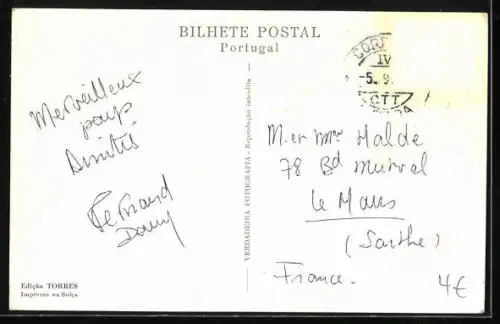 BILHETE POSTAL
Portugal
IV
-5. 9
CTT
Merveilleux
pays
Amitiés
Fernand
Dany
M. et Mme Halde
78 Bd
Le Mans
(Sarthe)
France.
4€
VERDADEIRA FOTOGRAFIA - Reprodução interdita
Edição TORRES
Impresso na Suíça